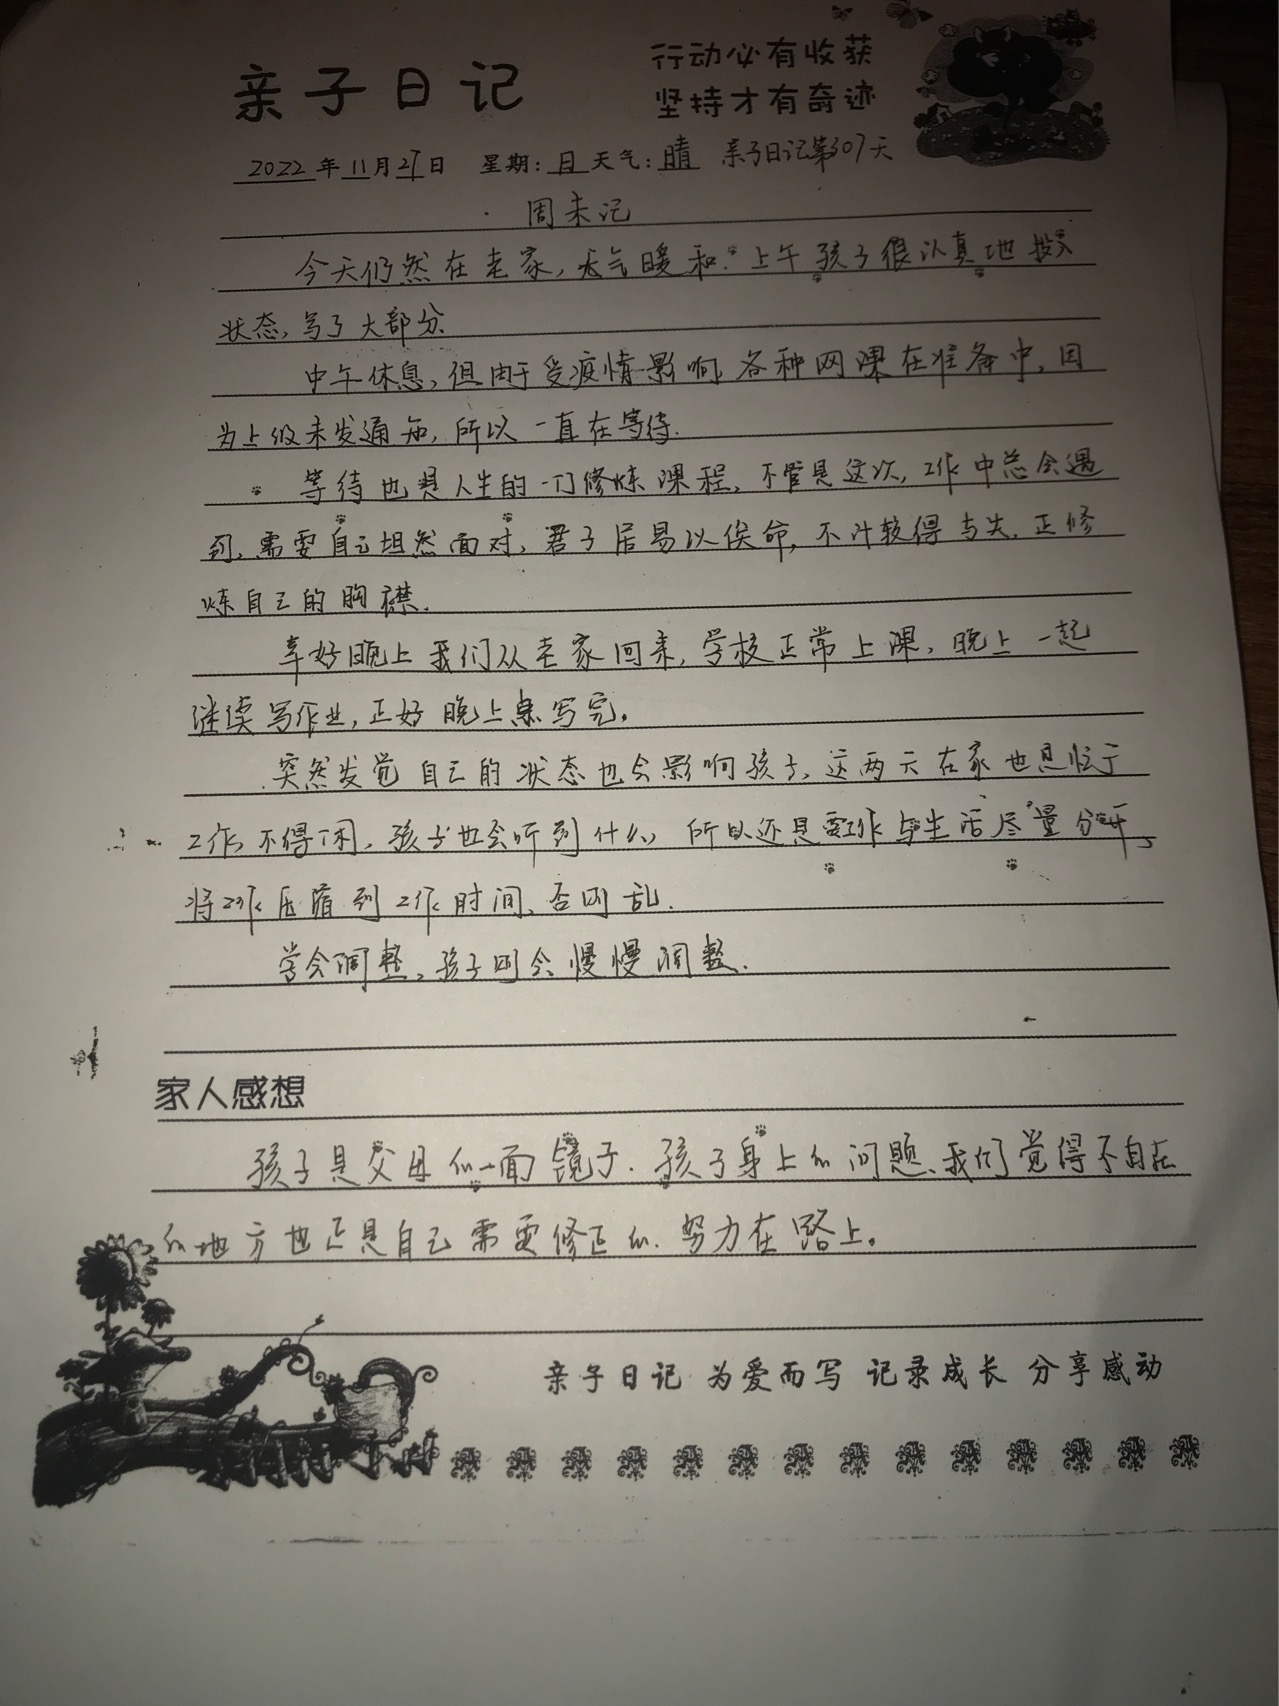 亲子日记
行动必有收获
坚持才有奇迹
2022年11月27日 星期:日 天气:晴 亲子日记第307天
周末记
今天仍然在老家,天气暖和.上午孩子很认真地投入
状态,写了大部分.
中午休息,但由于受疫情影响,各种网课在准备中,因
为上级未发通知,所以一直在等待.
等待也是人生的一门修炼课程,不管是这次,工作中总会遇
到,需要自己坦然面对,君子居易以俟命,不计较得与失,正修
炼自己的胸襟.
幸好晚上我们从老家回来,学校正常上课,晚上一起
继续写作业,正好晚上写完。
突然发觉自己的状态也会影响孩子,这两天在家也是忙于
工作,不得闲,孩子也会听到什么,所以还是要工作与生活尽量分开,
将工作压缩到工作时间,否则乱.
学会调整,孩子则会慢慢调整.
家人感想
孩子是父母的一面镜子.孩子身上的问题、我们觉得不自在
的地方也正是自己需要修正的.努力在路上。
亲子日记 为爱而写 记录成长 分享感动